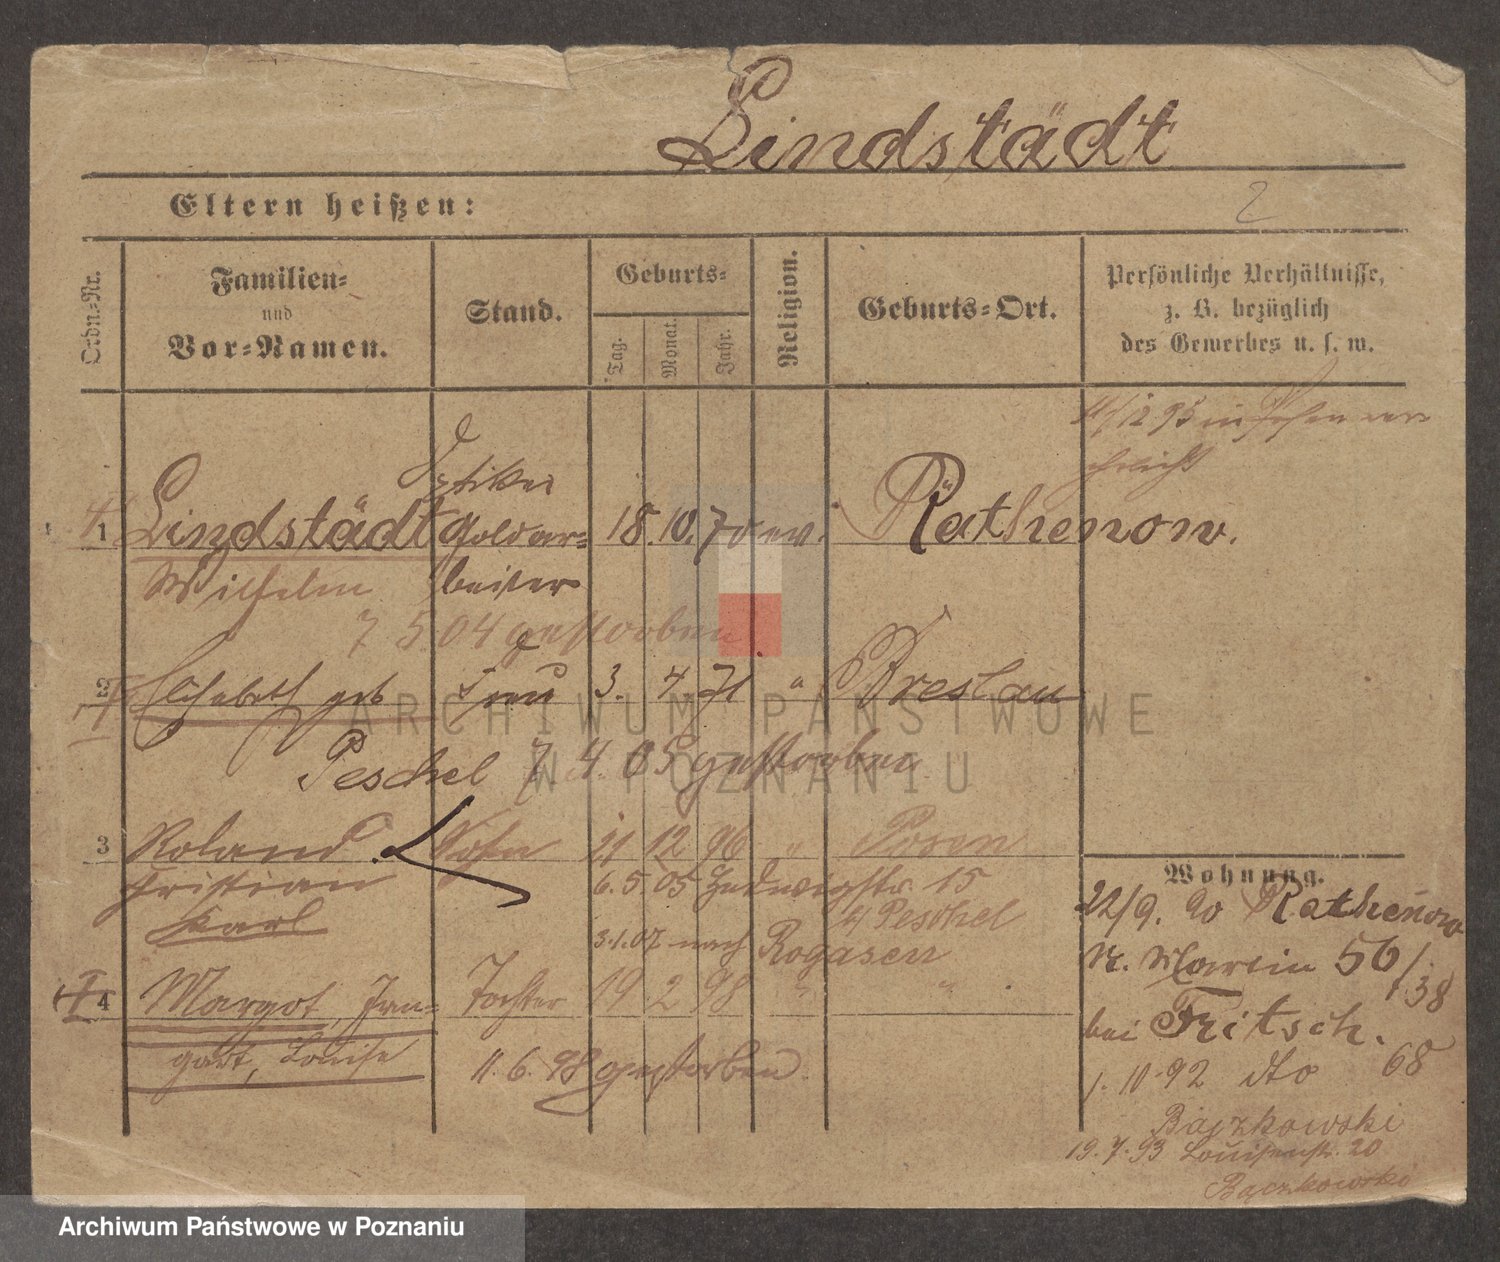 Lindstädt
Eltern heißen:
2
Ordn.-Nr.
Familien-
und
Vor-Namen.
Stand.
Geburts-
Tag.
Monat.
Jahr.
Religion.
Geburts-Ort.
Persönliche Verhältnisse,
z. B. bezüglich
des Gewerbes u. s. w.
11/12 95 in Posen ver-
ehelicht
Optiker
1 Lindstädt Goldar- 18. 10. 70 ev. Rathenow.
Wilhelm beiter
7 5 04 gestorben
2 Elisabeth geb Frau 3. 4 71 " Breslau
Peschel 7 4. 05 gestorben
3 Roland Sohn 21 12 96 " Posen
Fristian 6. 5. 05 Hedwigstr. 15
Karl b/ Peschel
3.1.07 nach Rogasen
4 Margot, Irm- Tochter 19 2 98 " "
gart, Louise 11. 6. 98 gestorben
Wohnung.
22/9. 90 Rathenow
St. Martin 56/
38
bei Fritsch.
1. 10. 92 dto 68
Bączkowski
19. 7. 93 Louisenstr. 20
Bączkowski
ARCHIWUM PAŃSTWOWE
W POZNANIU
Archiwum Państwowe w Poznaniu